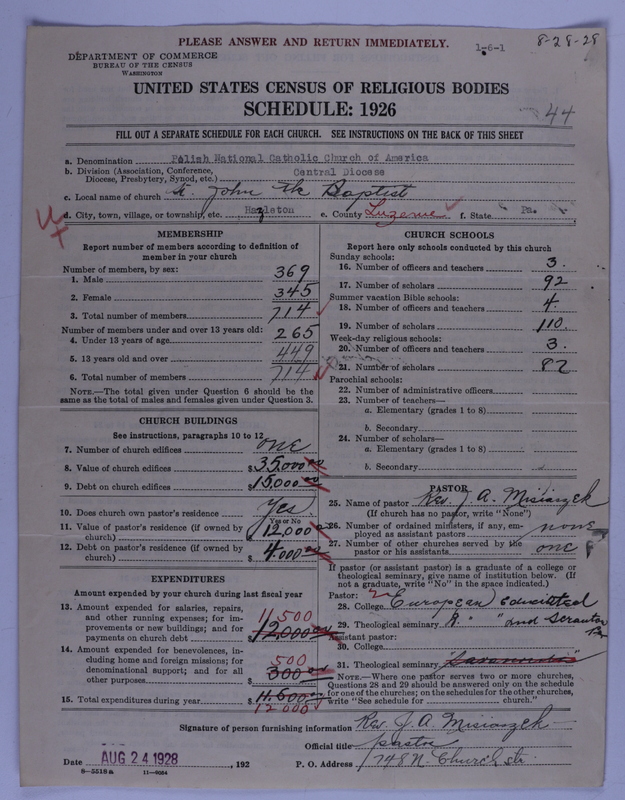 PLEASE ANSWER AND RETURN IMMEDIATELY.
1-6-1
8-28-28
DEPARTMENT OF COMMERCE
BUREAU OF THE CENSUS
WASHINGTON
UNITED STATES CENSUS OF RELIGIOUS BODIES
SCHEDULE: 1926
44
FILL OUT A SEPARATE SCHEDULE FOR EACH CHURCH. SEE INSTRUCTIONS ON THE BACK OF THIS SHEET
a. Denomination Polish National Catholic Church of America
b. Division (Association, Conference, Diocese, Presbytery, Synod, etc.) Central Diocese
c. Local name of church St. John the Baptist
d. City, town, village, or township, etc. Hazleton e. County Luzerne f. State Pa.
MEMBERSHIP
Report number of members according to definition of member in your church
Number of members, by sex:
1. Male 369
2. Female 345
3. Total number of members 714
Number of members under and over 13 years old:
4. Under 13 years of age 265
5. 13 years old and over 449
6. Total number of members 714
NOTE.—The total given under Question 6 should be the same as the total of males and females given under Question 3.
CHURCH BUILDINGS
See instructions, paragraphs 10 to 12
7. Number of church edifices one
8. Value of church edifices $35,000 00
9. Debt on church edifices $15,000 00
10. Does church own pastor's residence Yes
Yes or No
11. Value of pastor's residence (if owned by church) $12,000
12. Debt on pastor's residence (if owned by church) $4,000 00
EXPENDITURES
Amount expended by your church during last fiscal year
13. Amount expended for salaries, repairs, and other running expenses; for improvements or new buildings; and for payments on church debt $12,000 11,500
14. Amount expended for benevolences, including home and foreign missions; for denominational support; and for all other purposes $300 500
15. Total expenditures during year $11,600 12000
CHURCH SCHOOLS
Report here only schools conducted by this church
Sunday schools:
16. Number of officers and teachers 3.
17. Number of scholars 92
Summer vacation Bible schools:
18. Number of officers and teachers 4.
19. Number of scholars 110.
Week-day religious schools:
20. Number of officers and teachers 3.
21. Number of scholars 82
Parochial schools:
22. Number of administrative officers
23. Number of teachers—
a. Elementary (grades 1 to 8)
b. Secondary
24. Number of scholars—
a. Elementary (grades 1 to 8)
b. Secondary
PASTOR
25. Name of pastor Rev. J. A. Misiaszek
(If church has no pastor, write "None")
26. Number of ordained ministers, if any, employed as assistant pastors none
27. Number of other churches served by the pastor or his assistants one
If pastor (or assistant pastor) is a graduate of a college or theological seminary, give name of institution below. (If not a graduate, write "No" in the space indicated.)
Pastor:
28. College European Educated
29. Theological seminary " and Scranton Pa
Assistant pastor:
30. College
31. Theological seminary
NOTE.—Where one pastor serves two or more churches, Questions 28 and 29 should be answered only on the schedule for one of the churches; on the schedules for the other churches, write "See schedule for church."
Signature of person furnishing information Rev. J. A. Misiaszek
Official title pastor
Date AUG 24 1928, 192 P. O. Address 748 N. Church str.
8—5518a 11—9024